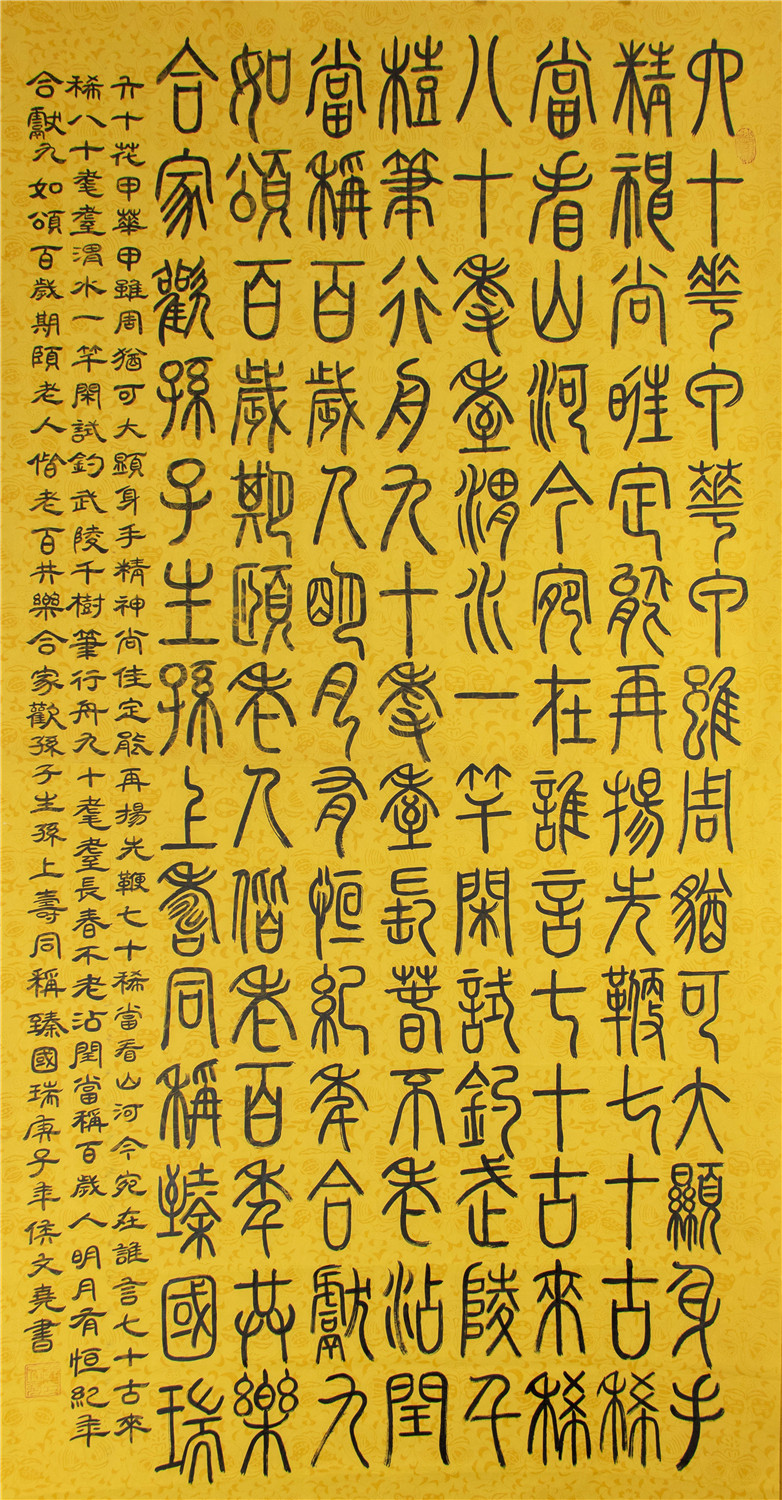 六十花甲華甲雖周猶可大顯身手
精神尚唯定能再揚先鞭七十古稀
當看山河今宛在誰言七十古來稀
八十耄耋渭水一竿閑試釣武陵千
樹筆行舟九十耄耋長春不老沾閏
當稱百歲人明月有恒紀年合獻九
如頌百歲期頤老人偕老百年共樂
合家歡孫子生孫上壽同稱臻國瑞
六十花甲華甲雖周猶可大顯身手精神尚佳定能再揚先鞭七十稀當看山河今宛在誰言七十古來
稀八十耄耋渭水一竿閑試釣武陵千樹筆行舟九十耄耋長春不老沾閏當稱百歲人明月有恒紀年
合獻九如頌百歲期頤老人偕老百共樂合家歡孫子生孫上壽同稱臻國瑞庚子年侯文堯書